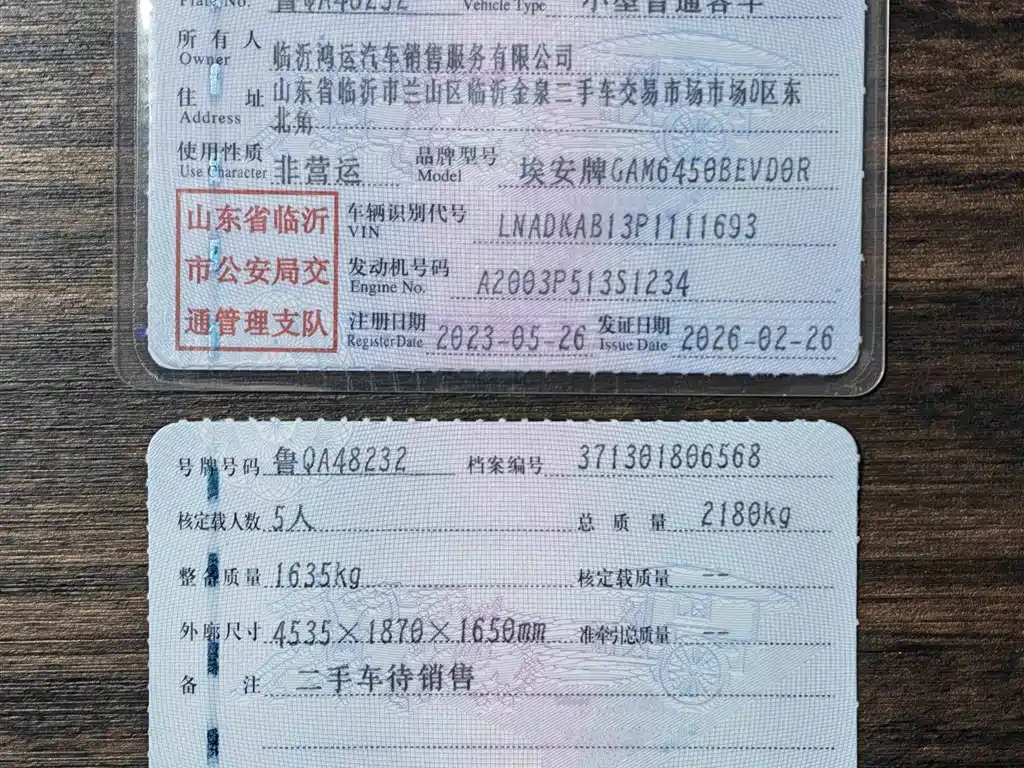 Plate No. 鲁QA48232 Vehicle Type 小型普通客车
所有人 临沂鸿运汽车销售服务有限公司
Owner
住址 山东省临沂市兰山区临沂金泉二手车交易市场市场D区东
Address 北角
使用性质 非营运 品牌型号 埃安牌GAM6450BEVD0R
Use Character Model
山东省临沂
市公安局交
通管理支队
车辆识别代号 LNADKAB13P1111693
VIN
发动机号码 A2003P513S1234
Engine No.
注册日期 2023-05-26 发证日期 2026-02-26
Register Date Issue Date
号牌号码 鲁QA48232 档案编号 371301806568
核定载人数 5人 总质量 2180kg
整备质量 1635kg 核定载质量 --
外廓尺寸 4535×1870×1650mm 准牵引总质量 --
备注 二手车待销售